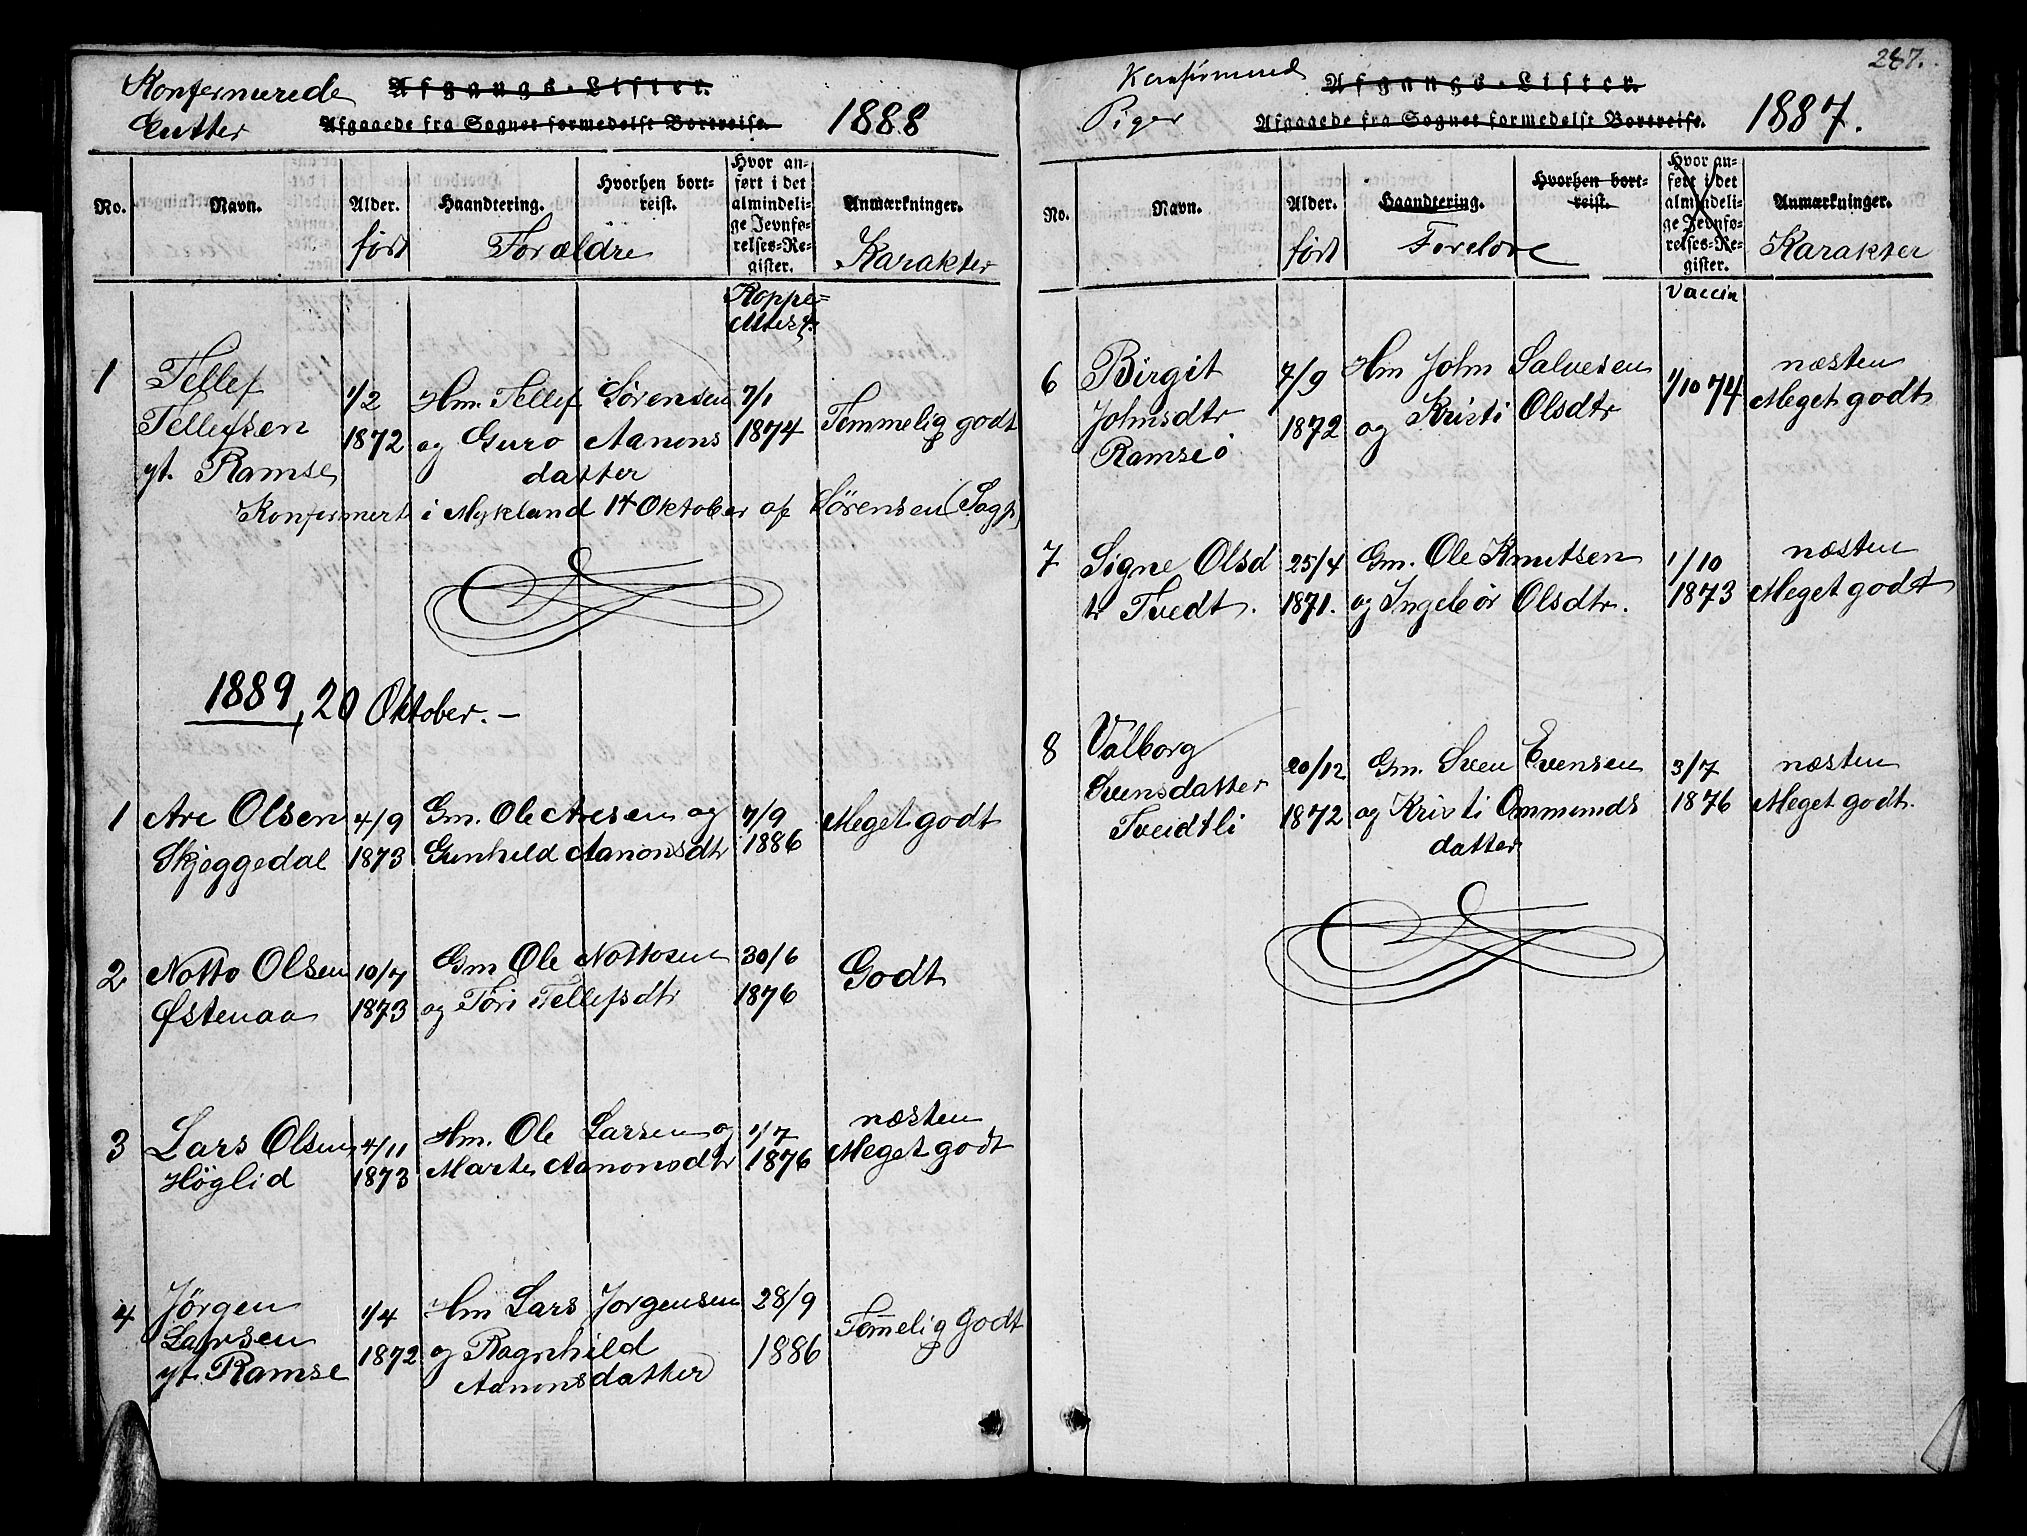 Konfermerede
Gutter
Afgangs-Lister.
Afgaaede fra Sognet formedelst Bortreise.
1888
No.
Navn.
Alder.
født
Haandtering.
Forældre
Hvorhen bort-
reist.
Hvor an-
ført i det
almindeli-
ge Jevnfø-
relses-Re-
gister.
Koppe-
Attest.
Anmærkninger.
Karakter
1 Tellef 1/2 Hm. Tellef Sørensen 7/1 Temmelig godt
Tellefsen 1872 og Guro Aanons 1874
yt. Ramse datter
Konfermert i Mykland 14 Oktober af Sørensen (Sagp)
1889, 20 Oktober. –
1 Are Olsen 4/9 Gm. Ole Aresen og 7/9 Meget godt
Skjeggedal 1873 Gunhild Aanonsdtr 1886
2 Notto Olsen 10/7 Gm Ole Nottosen 30/6 Godt
Østenaa 1873 og Tøri Tellefsdtr 1876
3 Lars Olsen 4/11 Hm. Ole Larsen og 1/7 næsten
Høglid 1873 Marte Aanonsdtr 1876 Meget godt
4 Jørgen 1/4 Hm Lars Jorgensen 28/9 Tem̄elig Godt
Larsen 1872 og Ragnhild 1886
yt. Ramse Aanonsdatter
287.
Konfirmered
Piger
Afgangs-Lister.
Afgaaede fra Sognet formedelst Bortreise.
1887.
No.
Navn.
Alder.
født
Haandtering.
Hvorhen bort-
reist.
Hvor an-
ført i det
almindeli-
ge Jevnfø-
relses-Re-
gister.
Vaccin
Anmærkninger.
Karakter
6 Birgit 7/9 Hm John Salvesen 1/10 74 næsten
Johnsdtr 1872 og Kristi Olsdtr Meget godt
Ramseø
7 Signe Olsd 25/4 Gm. Ole Knutsen 1/10 næsten
tr Tvedt. 1871. og Ingebør Olsdtr. 1873 Meget godt
8 Valborg 20/12 Gm. Sven Evensen 3/7 næsten
Svensdatter 1872 og Kristi Ommunds 1876 Meget godt.
Tveidtli datter